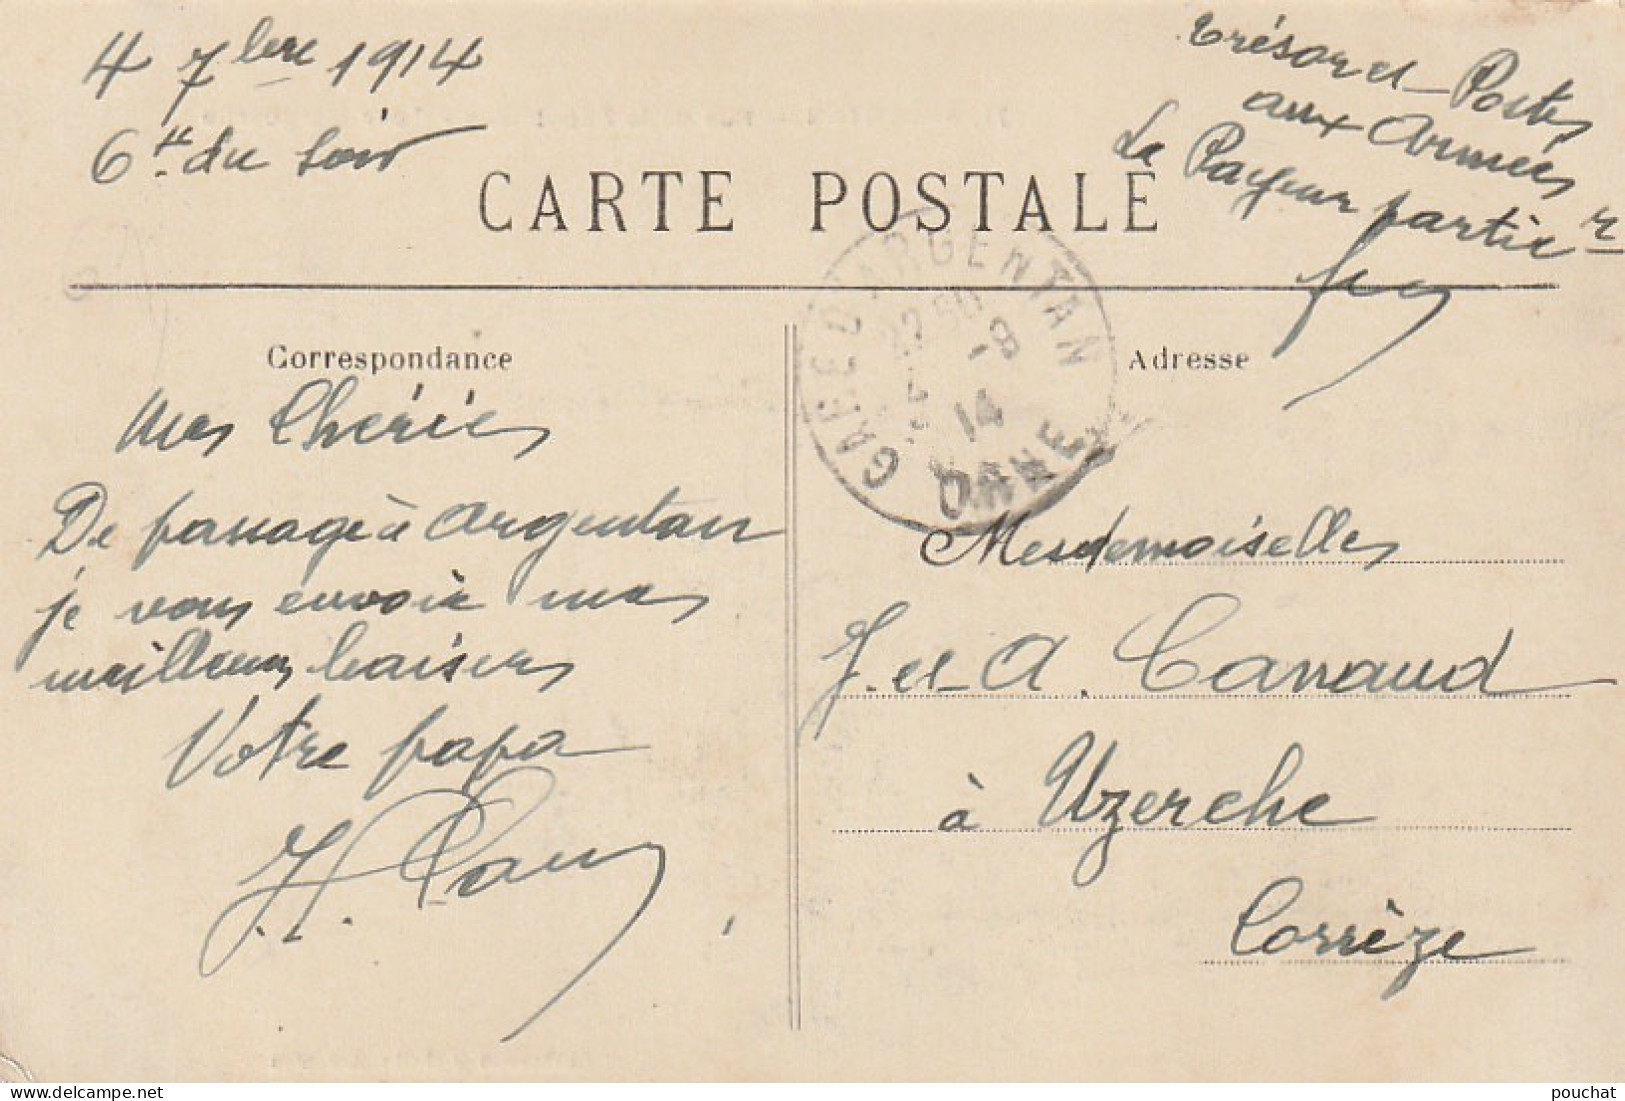 4 7bre 1914
6 H. du soir
Trésor et Postes
aux Armées
Le Payeur particr
CARTE POSTALE
GARE D'ARGENTAN
ORNE
14
Correspondance
Adresse
Mes Chéries
De passage à Argentan
je vous envoie mes
meilleurs baisers
Votre papa
Mesdemoiselles
J. et A. Canaud
à Uzerche
Corrèze
pouchat